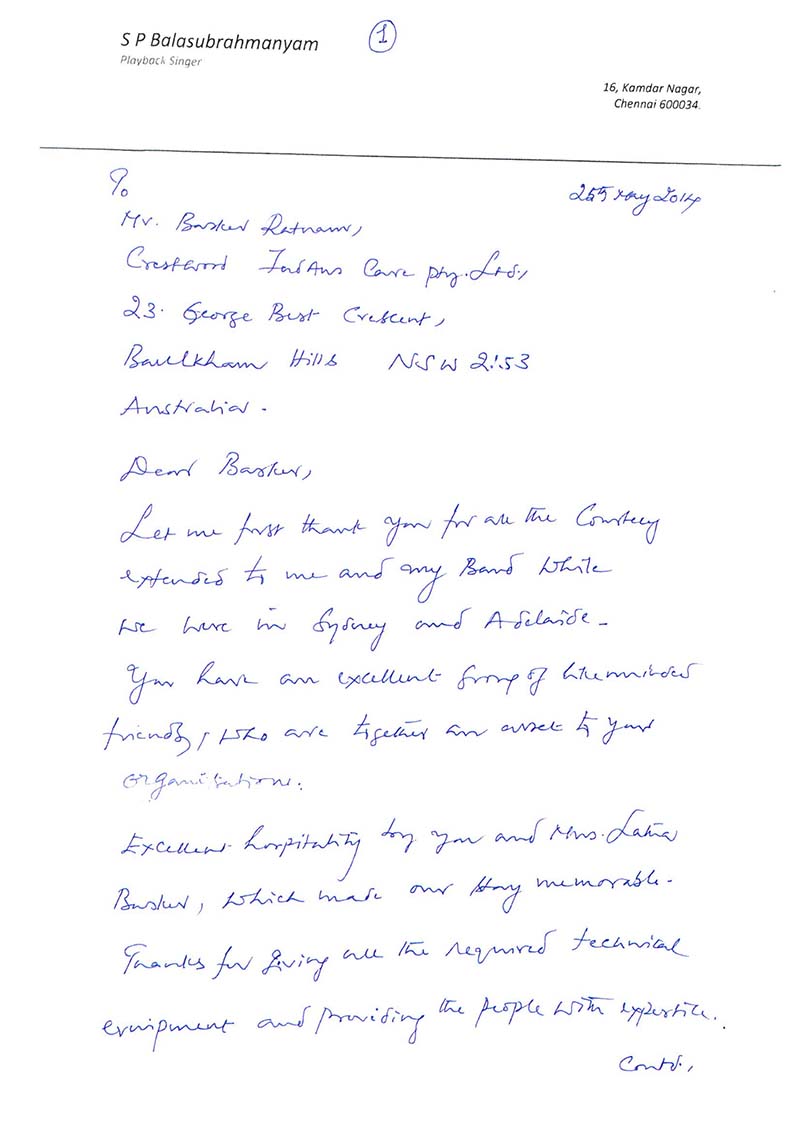 S P Balasubrahmanyam
1
Playback Singer
16, Kamdar Nagar,
Chennai 600034.
To
25th May 2014
Mr. Basker Ratnam,
Crestwood Care Pty. Ltd.,
23. George Best Crescent,
Baulkham Hills NSW 2153
Australia.
Dear Basker,
Let me first thank you for all the Courtecy
extended to me and my Band While
we were in Sydney and Adelaide.
You have an excellent group of likeminded
friends, who are together an asset to your
organisation.
Excellent hospitality by you and Mrs. Latha
Basker, which made our stay memorable.
Thanks for giving all the required technical
equipment and providing the people with expertice.
Contd.,